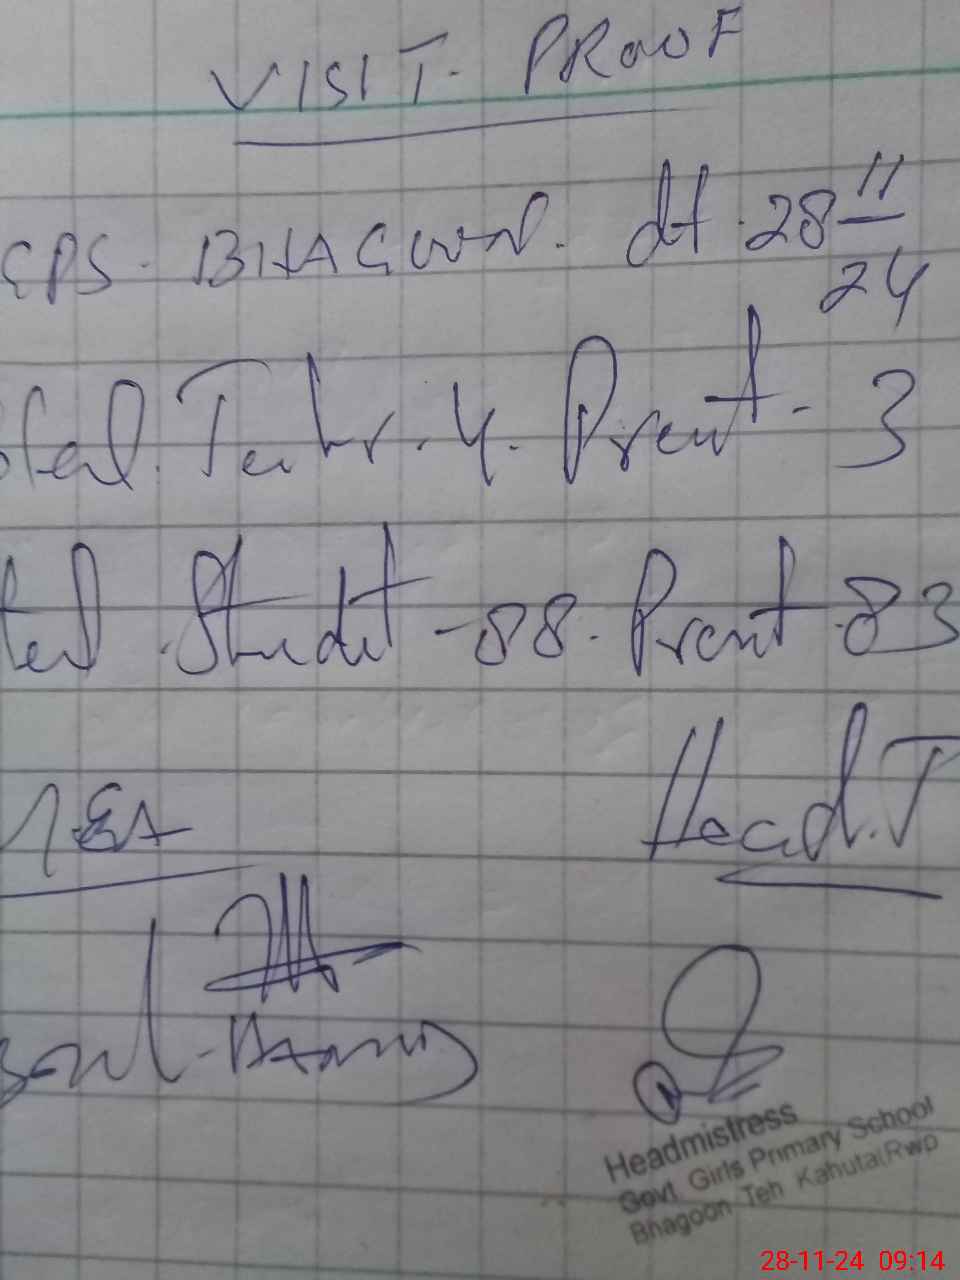 VISIT PROOF
GPS. BHAGOON. dt. 28 11/24
Total. Techr. 4. Present - 3
Total Student - 88. Present. 83
MEA Head. T
Headmistress
Govt Girls Primary School
Bhagoon Teh Kahuta(Rwp
28-11-24 09:14